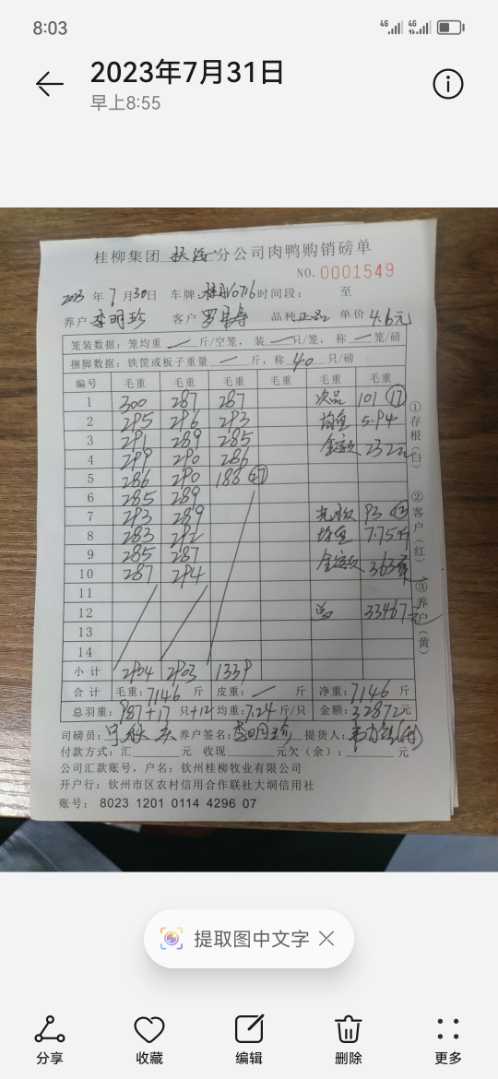 8:03
2023年7月31日
早上8:55
桂柳集团 分公司肉鸭购销磅单
NO. 0001549
2023 年 7 月 30 日 车牌: 时间段: 至
养户 李明珍 客户 品种 正品 单价 4.6元
笼装数据: 笼均重 — 斤/空笼, 装 — 只/笼, 称 — 笼/磅
捆脚数据: 铁筐或板子重量 — 斤, 称 40 只/磅
编号 毛重 毛重 毛重 毛重 毛重 毛重
1 300 287 287 次品 101 ⑰
2 295 296 293 均重 5.94
3 291 289 285 金额 232元
4 299 290 286
5 286 290 188
6 285 289
7 293 289 93 ⑫
8 283 292 均重 7.75斤
9 285 287 金额 363元
10 287 294
11
12 总 33467元
13
14
小计 2904 2903 1339
合计 毛重: 7146 斤 皮重: — 斤 净重: 7146 斤
总羽重: 987+17 只+12 均重: 7.24 斤/只 金额: 32872元
司磅员: 养户签名: 李明珍 提货人:
付款方式: 汇 元 收现 元欠(余): 元
公司汇款账号, 户名: 钦州桂柳牧业有限公司
开户行: 钦州市区农村信用合作联社大垌信用社
账号: 8023 1201 0114 4296 07
①存根(白)
②客户(红)
③养户(黄)
提取图中文字
分享 收藏 编辑 删除 更多